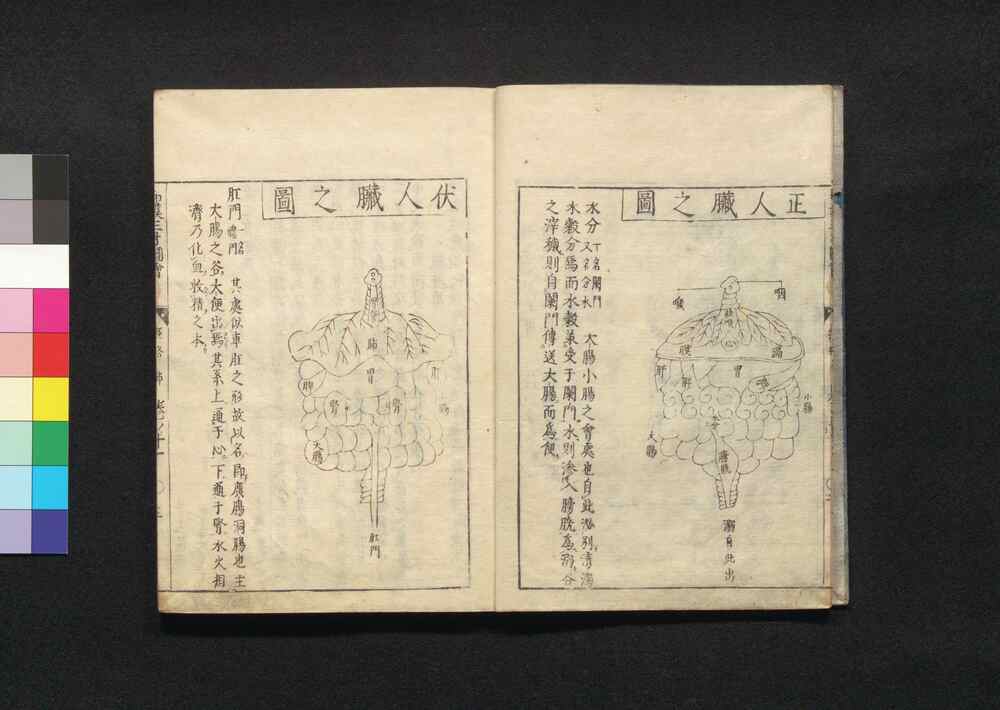 正人臓之圖
水分 一名闌門 又名分水 大腸小腸之會處也自此泌別清濁
水穀分焉而水穀並受于闌門水則滲入膀胱為溺谷
之滓穢則自闌門傳送大腸而為便
咽
喉
膈
膜
胃
肝
小腸
大腸
水分
膀胱
溺自此出
伏人臓之圖
肛門 一名魄門 其處似車肛之形故以名即廣腸洞腸也主
大腸之莶大便出焉其系上通于心下通于腎水火相
濟乃化血收精之本
肺
胃
脾
肝
腎
腎
大腸
肛門